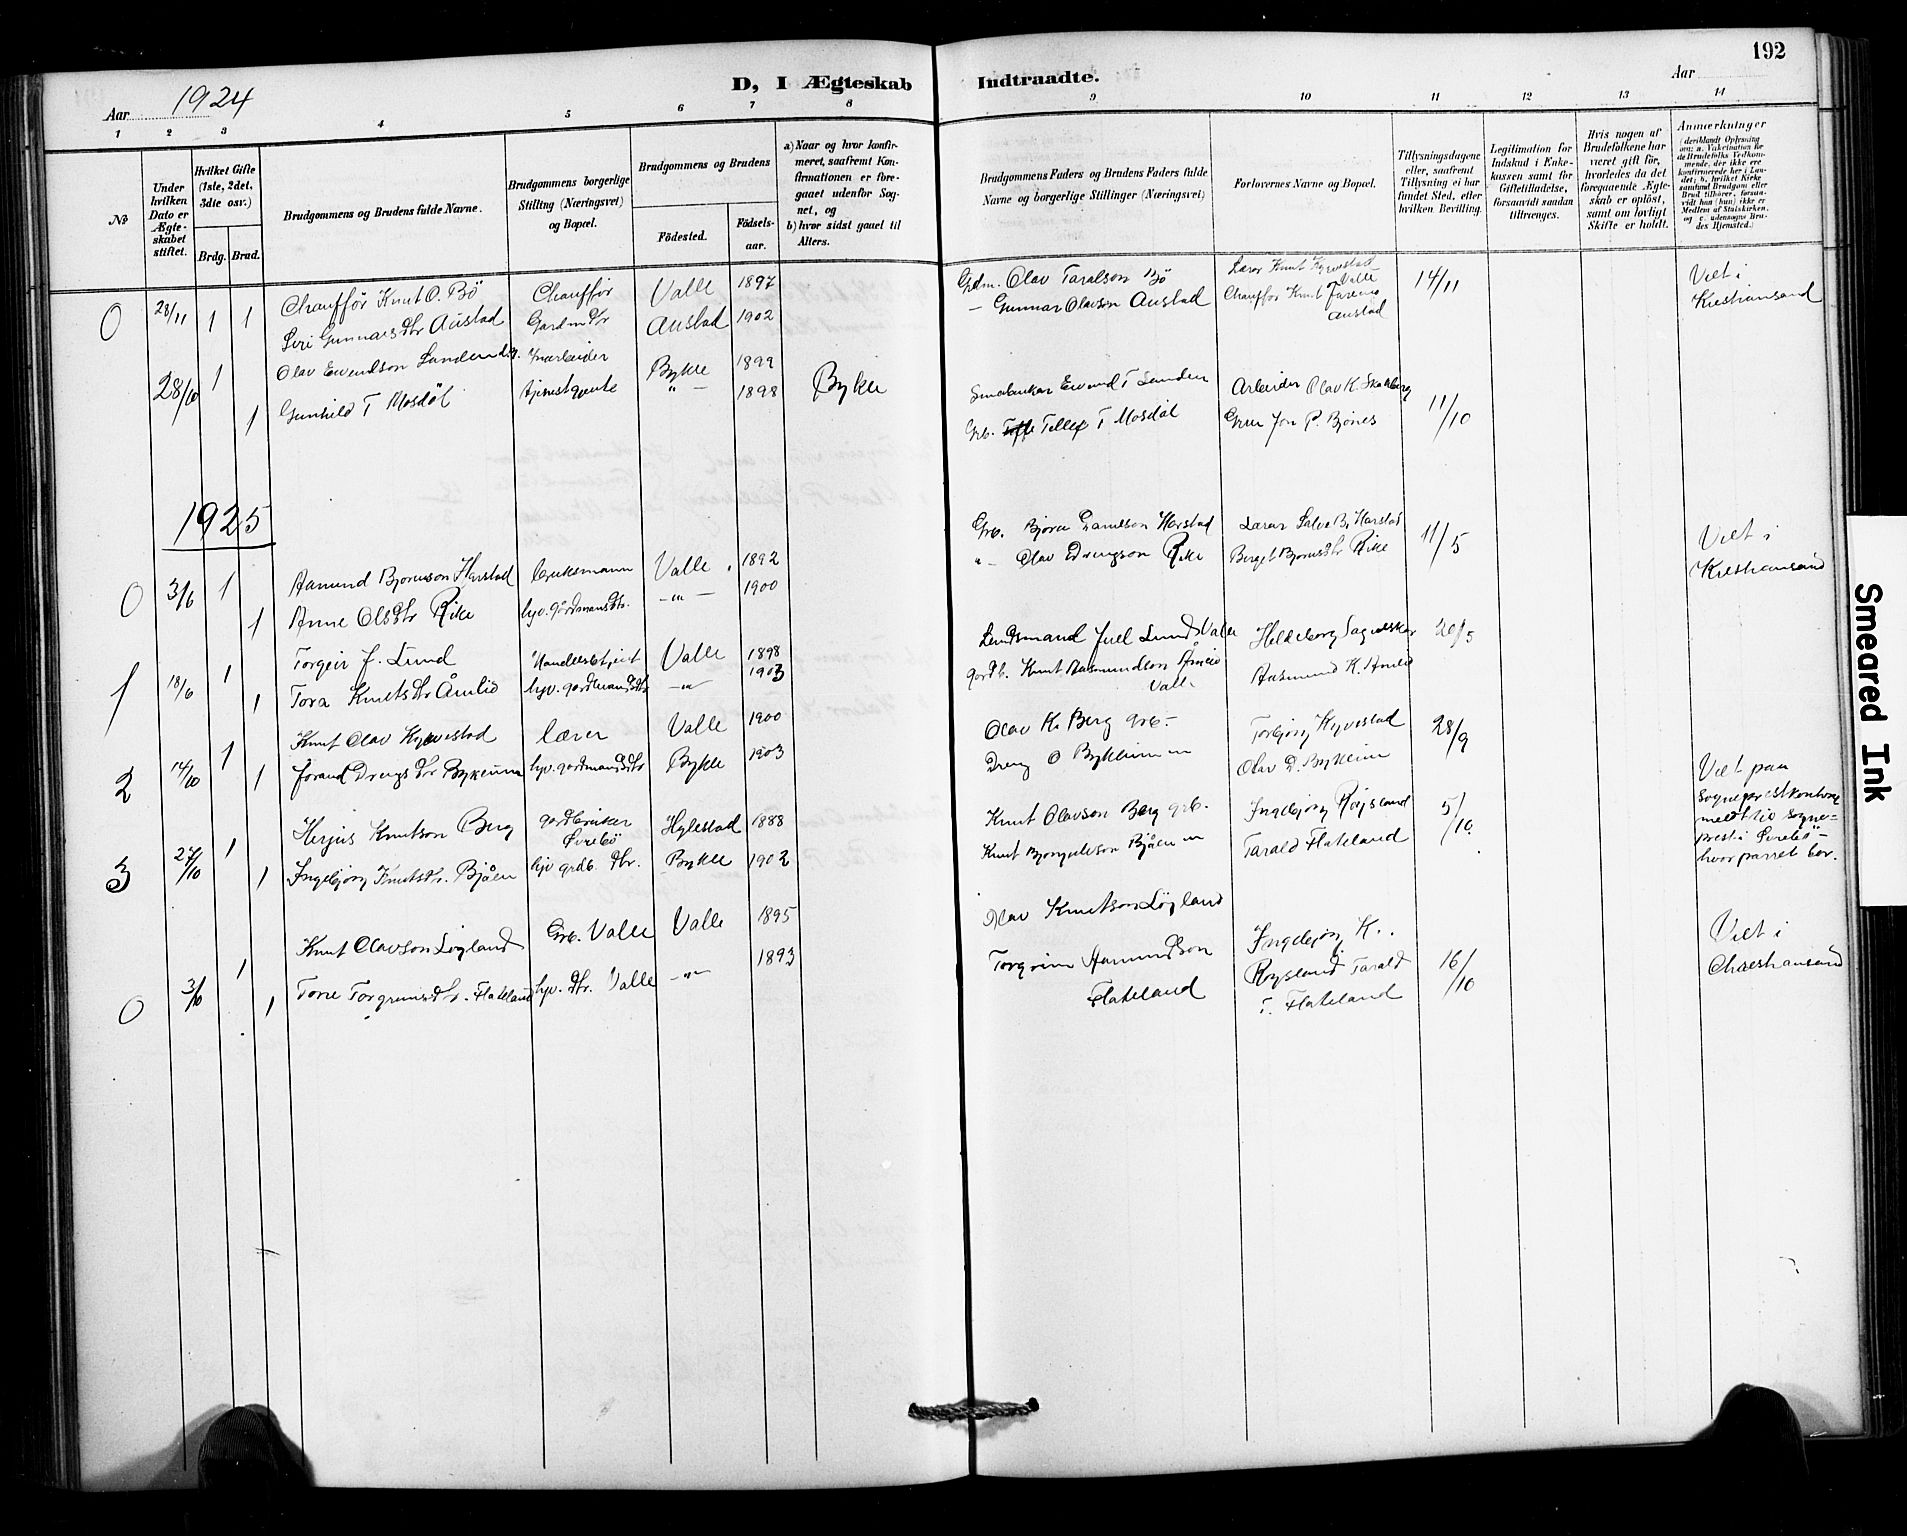 192
Aar 1924
D, I Ægteskab Indtraadte.
Aar
1 2 3 4 5 6 7 8 9 10 11 12 13 14
№
Under hvilken Dato er Ægteskabet stiftet.
Hvilket Gifte (1ste, 2det, 3die osv.)
Brdg. Brud.
Brudgommens og Brudens fulde Navne.
Brudgommens borgerlige Stilling (Næringsvei) og Bopæl.
Brudgommens og Brudens
Fødested.
Fødselsaar.
a) Naar og hvor konfirmeret, saafremt Konfirmationen er foregaaet udenfor Sognet, og
b) hvor sidst gaaet til Alters.
Brudgommens Faders og Brudens Faders fulde Navne og borgerlige Stillinger (Næringsvei)
Forlovernes Navne og Bopæl.
Tillysningsdagene eller, saafremt Tillysning ei har fundet Sted, efter hvilken Bevilling.
Legitimation for Indskud i Enkekassen samt for Giftetilladelse, forsaavidt saadan tiltrænges.
Hvis nogen af Brudefolkene har været gift før, hvorledes da det foregaaende Ægteskab er opløst, samt om lovligt Skifte er holdt.
Anmærkninger
0 28/11 1 1 Chauffør Knut O. Bö Chauffør Valle 1897 Gdm. Olav Taralson Bö 14/11 Viet i
Siri Gunnarsdtr Austad Gardmdtr Austad 1902 — Gunnar Olavson Austad Chauffør Knut Austad Kristiansand
28/10 1 Olav Eivendson Sanden Bykle 1899 Eivend T Sanden Arbeider Olav K.
1 Gunhild T Mosdøl tjenestgjente " — 1898 Bykle Grb. Tellef T Mosdøl Jon P. Bjönes 11/10
1925
0 3/6 1 Aamund Bjornson Harstad bruksmann Valle 1892 Grb. Harstad Lærar Salve B. Harstad 11/5 Viet i
1 Anne Olsdtr Rike hjv. gårdmansdtr. — " — 1900 " - Olav Drengson Rike Berget Bjornsdtr Rike Kristiansand
1 18/6 1 Torgeir J. Lund Valle 1898 Lendsmand Juel Lund Valle 20/5
1 Tora Knutsdtr Åmlid hjv. gardmansdtr — " — 1903 Knut Aasmundson Åmlid Valle Aasmund K. Åmlid
2 14/10 1 Knut Olav Kyvestad lærer Valle 1900 Olav K. Berg grb — Torbjörg Kyvestad 28/9
1 Jorand Drengsdtr Bykleim hjv. gardmansdtr Bykle 1903 Dreng O Bykleim " Olav D. Bykleim
3 27/10 1 Herjus Knutson Berg gardbruker Øvrebö Hylestad 1888 Knut Olavson Berg grb. Ingebjörg Röysland 5/10
1 Ingebjörg Knutsdr. Bjåen hjv grdb. dtr. Bykle 1902 Knut Bjåen " Tarald Flateland
Viet paa
Sogneprestkontoret
meldt til sogne=
prest i Øvrebö —
hvor parret bor.
0 3/10 1 Knut Olavson Lögland Grb. Valle Valle 1895 Olav Knutson Lögland Ingebjörg K. Viet i
1 Tone Torgrimsdtr. Flateland hjv. dtr. Valle — " — 1893 Torgrim Aamundson Flateland Röysland Tarald T. Flateland 16/10 Christiansand
Smeared Ink